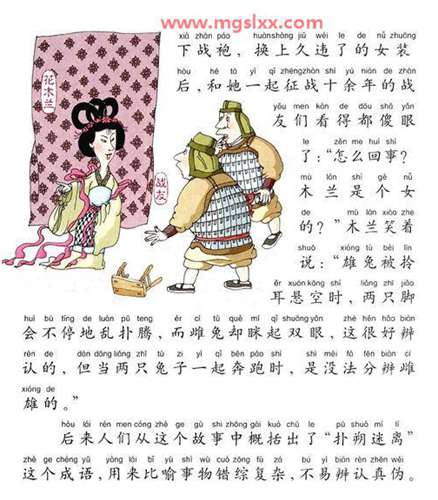 www.mgslxx.com
xià zhàn páo huànshàng jiǔ wéi le de nǚ zhuāng
下战袍，换上久违了的女装
hòu hé tā yì qǐ zhēngzhàn shí yú nián de zhàn
后，和她一起征战十余年的战
yǒu men kàn de dōu shǎ yǎn
友们看得都傻眼
le zěn me huí shì
了：“怎么回事？
mù lán shì gè nǚ
木兰是个女
de mù lán xiào zhe
的？”木兰笑着
shuō xióng tù bèi līn
说：“雄兔被拎
ěr xuán kōng shí liǎng zhī jiǎo
耳悬空时，两只脚
花木兰
战友
huì bù tíng de luàn pū teng ér cí tù què mī qǐ shuāngyǎn zhè hěn hǎo biàn
会不停地乱扑腾，而雌兔却眯起双眼，这很好辨
rèn de dàn dāng liǎng zhī tù zi yì qǐ bēn pǎo shí shì méi fǎ fēn biàn cí
认的，但当两只兔子一起奔跑时，是没法分辨雌
xióng de
雄的。”
hòu lái rén men cóng zhè ge gù shi zhōng gài kuò chū le pū shuò mí lí
后来人们从这个故事中概括出了“扑朔迷离”
zhè ge chéng yǔ yòng lái bǐ yù shì wù cuò zōng fù zá bú yì biàn rèn zhēn wěi
这个成语，用来比喻事物错综复杂，不易辨认真伪。